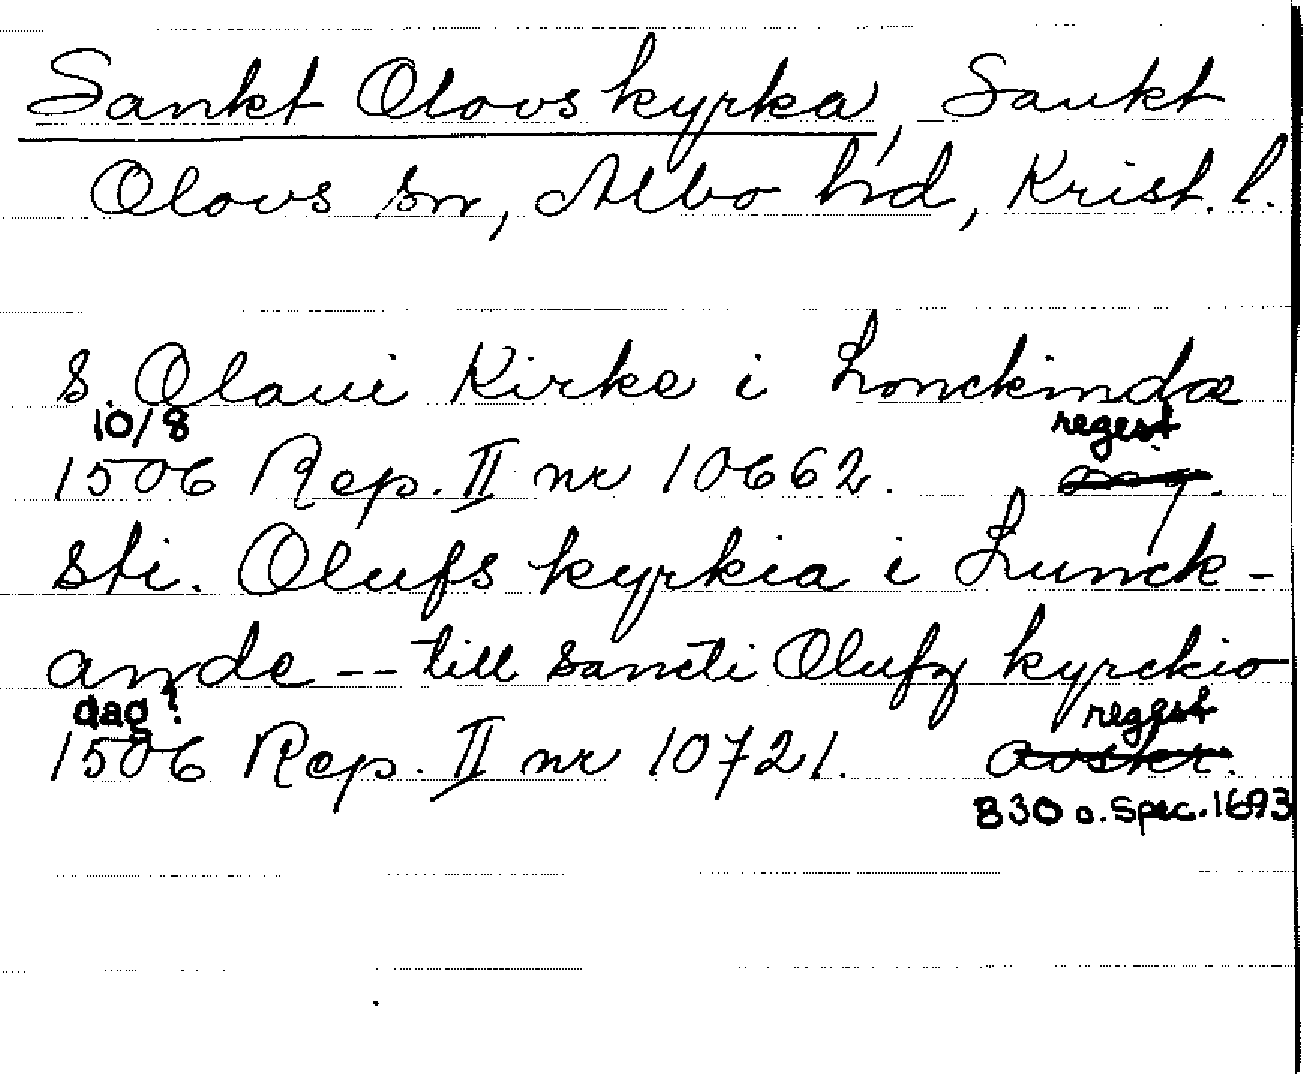 Sankt Olovs kyrka, Sankt
Olovs sn, Albo hd, Krist. l.
S. Olaui Kirke i Lonckindæ
10/8 regest
1506 Rep. II nr 10662.
Sti. Olufs kyrkia i Lunck-
ande -- till sancti Olufz kyrckio
dag? regest
1506 Rep. II nr 10721. avskr.
B30 o. Spec. 1693